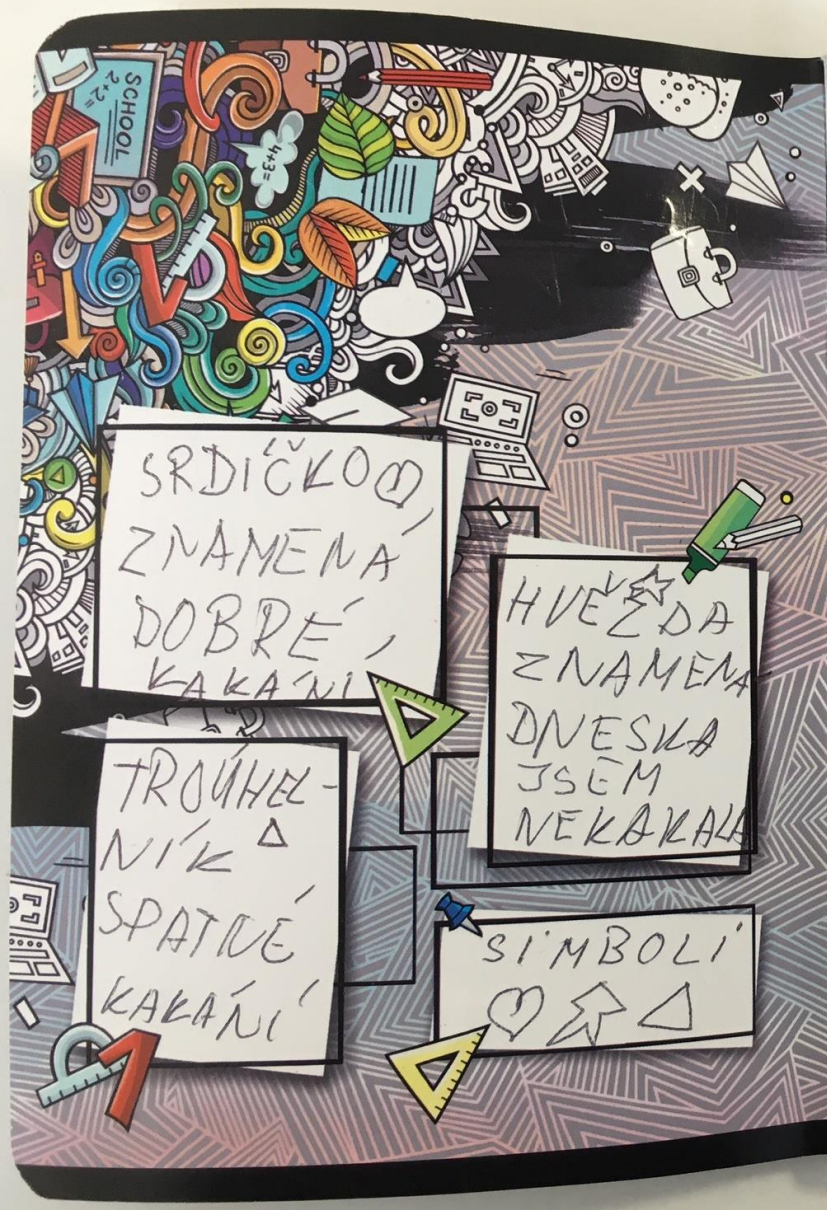 SCHOOL
2+2=
4+3=
SRDÍČKO♡
ZNAMENÁ
DOBRÉ
KAKÁNÍ
HVĚŽDA
ZNAMENÁ
DNESKA
JSEM
NEKAKALA
TROÚHEL-
NÍK △
SPATNÉ
KAKÁNÍ
SIMBOLI